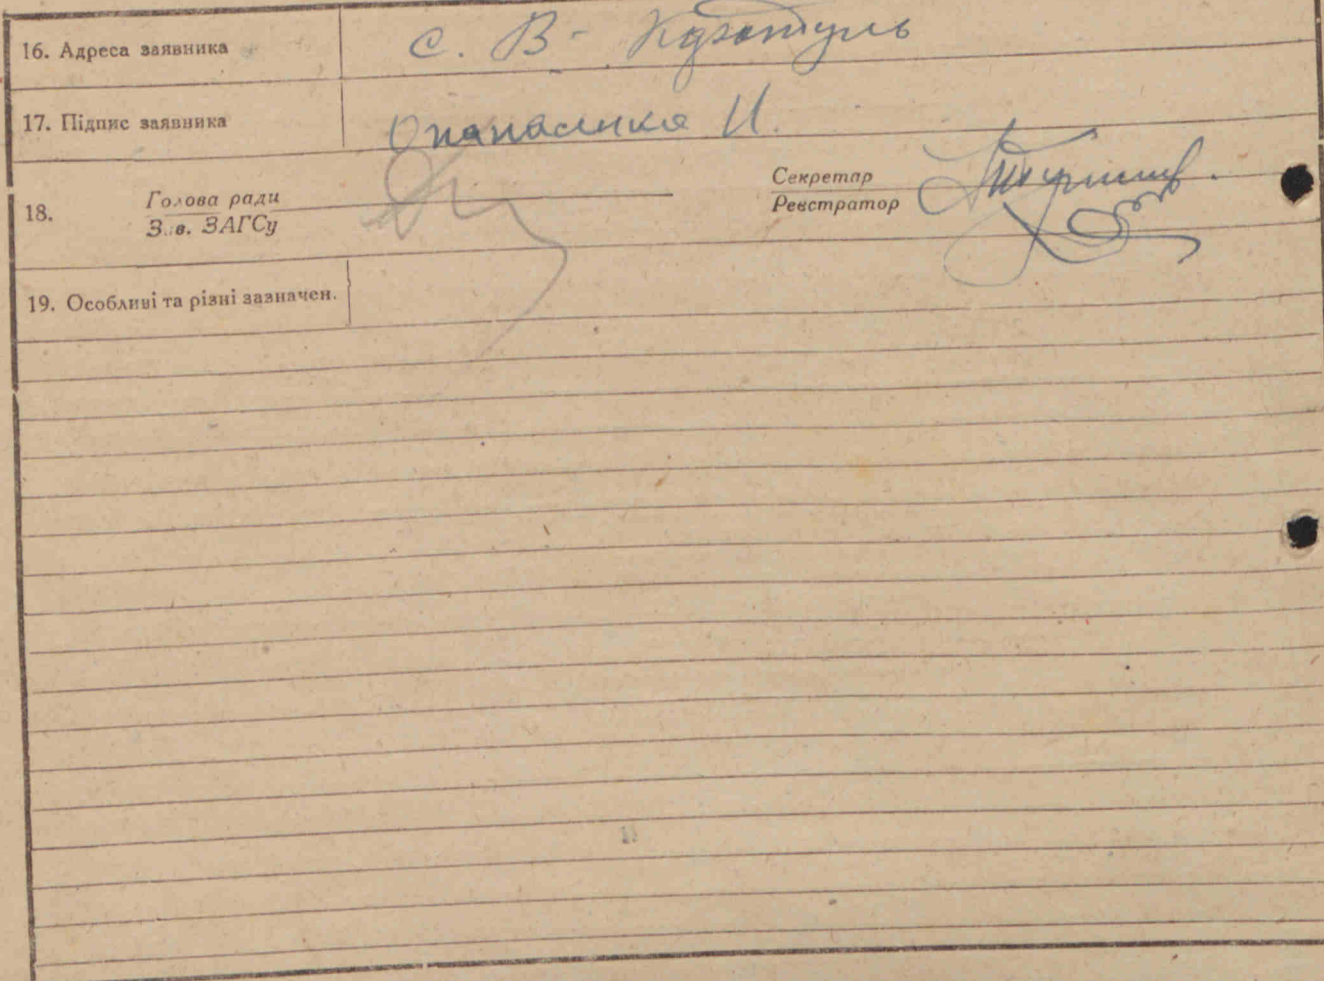 16. Адреса заявника с. В-
17. Підпис заявника Опанасенко И.
18. Голова ради Секретар
Зав. ЗАГСу Реєстратор
19. Особливі та різні зазначен.